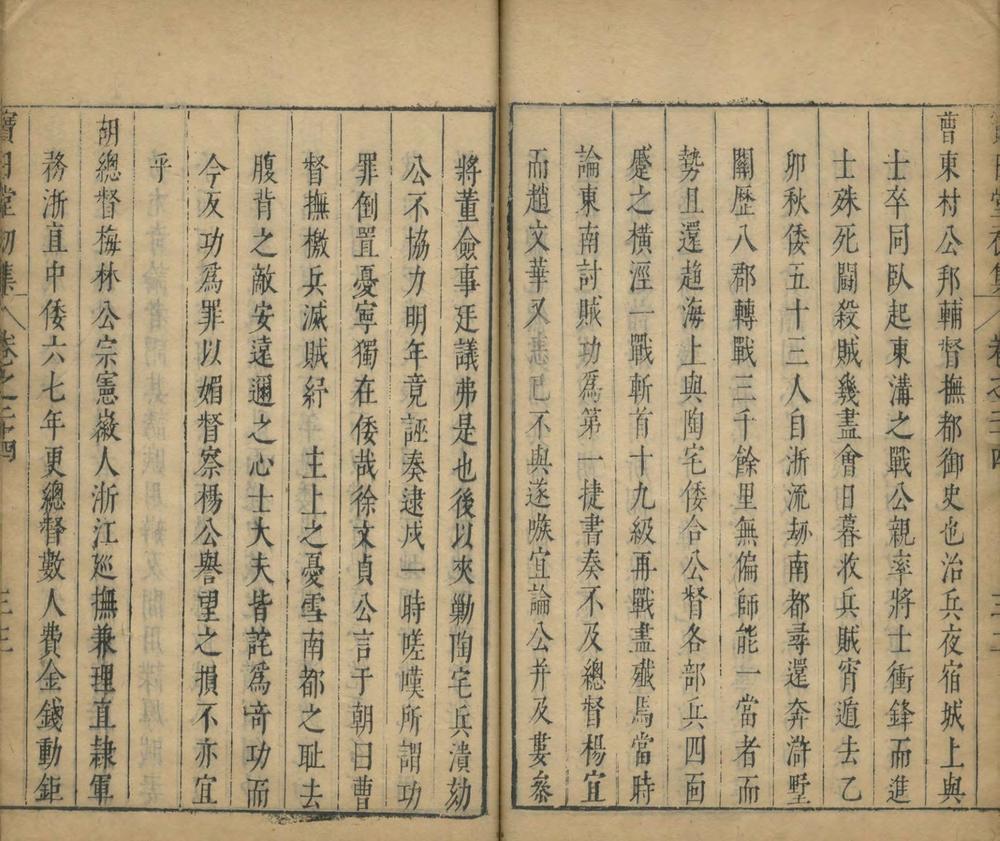 曹東村公邦輔督撫都御史也治兵夜宿城上與
士卒同臥起東溝之戰公親率將士衝鋒而進
士殊死鬬殺賊幾盡會日暮收兵賊宵遁去乙
卯秋倭五十三人自浙流刼南都尋還奔滸墅
關歷八郡轉戰三千餘里無偏師能一當者而
勢且還趨海上與陶宅倭合公督各部兵四面
蹙之橫涇一戰斬首十九級再戰盡殱焉當時
論東南討賊功爲第一捷書奏不及總督楊宜
而趙文華又恚已不與遂嗾宜論公并及婁叅
將董僉事廷議弗是也後以夾勦陶宅兵潰劾
公不協力明年竟誣奏逮戍一時嗟嘆所謂功
罪倒置憂寧獨在倭哉徐文貞公言于朝曰曹
督撫檄兵滅賊紓 主上之憂雪南都之耻去
腹背之敵安遠邇之心士大夫皆詫爲奇功而
今反功爲罪以媚督察楊公譽望之損不亦宜
乎
胡總督梅林公宗憲徽人浙江廵撫兼理直隷軍
務浙直中倭六七年更總督數人費金錢動鉅
寶日堂初集 卷之二十四 三三